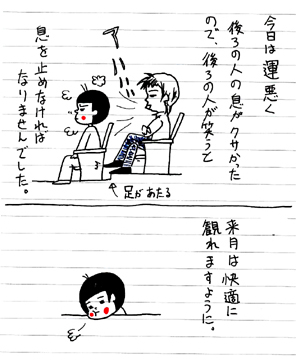 今日は運悪く
後ろの人の息がクサかった
ので、後ろの人が笑うと
息を止めなければ
なりませんでした。
↑足があたる
来月は快適に
観れますように。